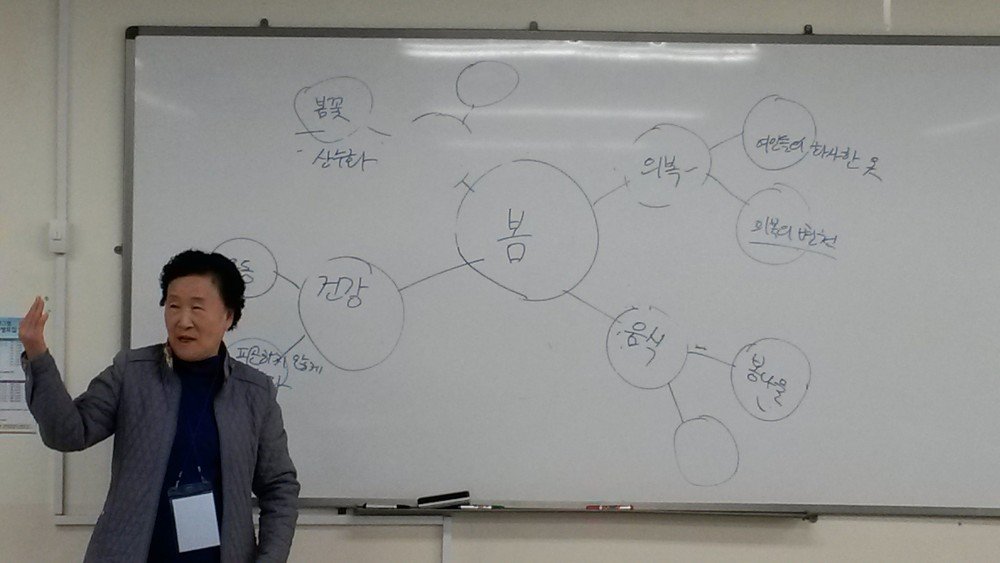 봄꽃
산수화
봄
의복
여인들의 화사한 옷
의복의 변천
건강
동
피곤하지 않게
음식
봄나물